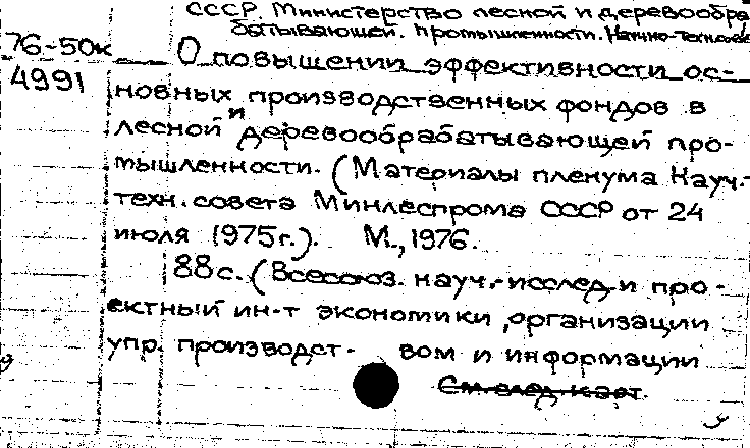 СССР Министерство лесной и деревообра
батывающей. промышленности. Научно-техническ
76-50к
О повышении эффективности ос-
4991
новных производственных фондов в
лесной и деревообрабатывающей про-
мышленности. (Материалы пленума Науч.-
техн. совета Минлеспрома СССР от 24
июля 1975г.). М., 1976.
88с. (Всесоюз. науч.-исслед. и про-
ектный ин-т экономики, организации
упр. производст- вом и информации
См. след. карт.